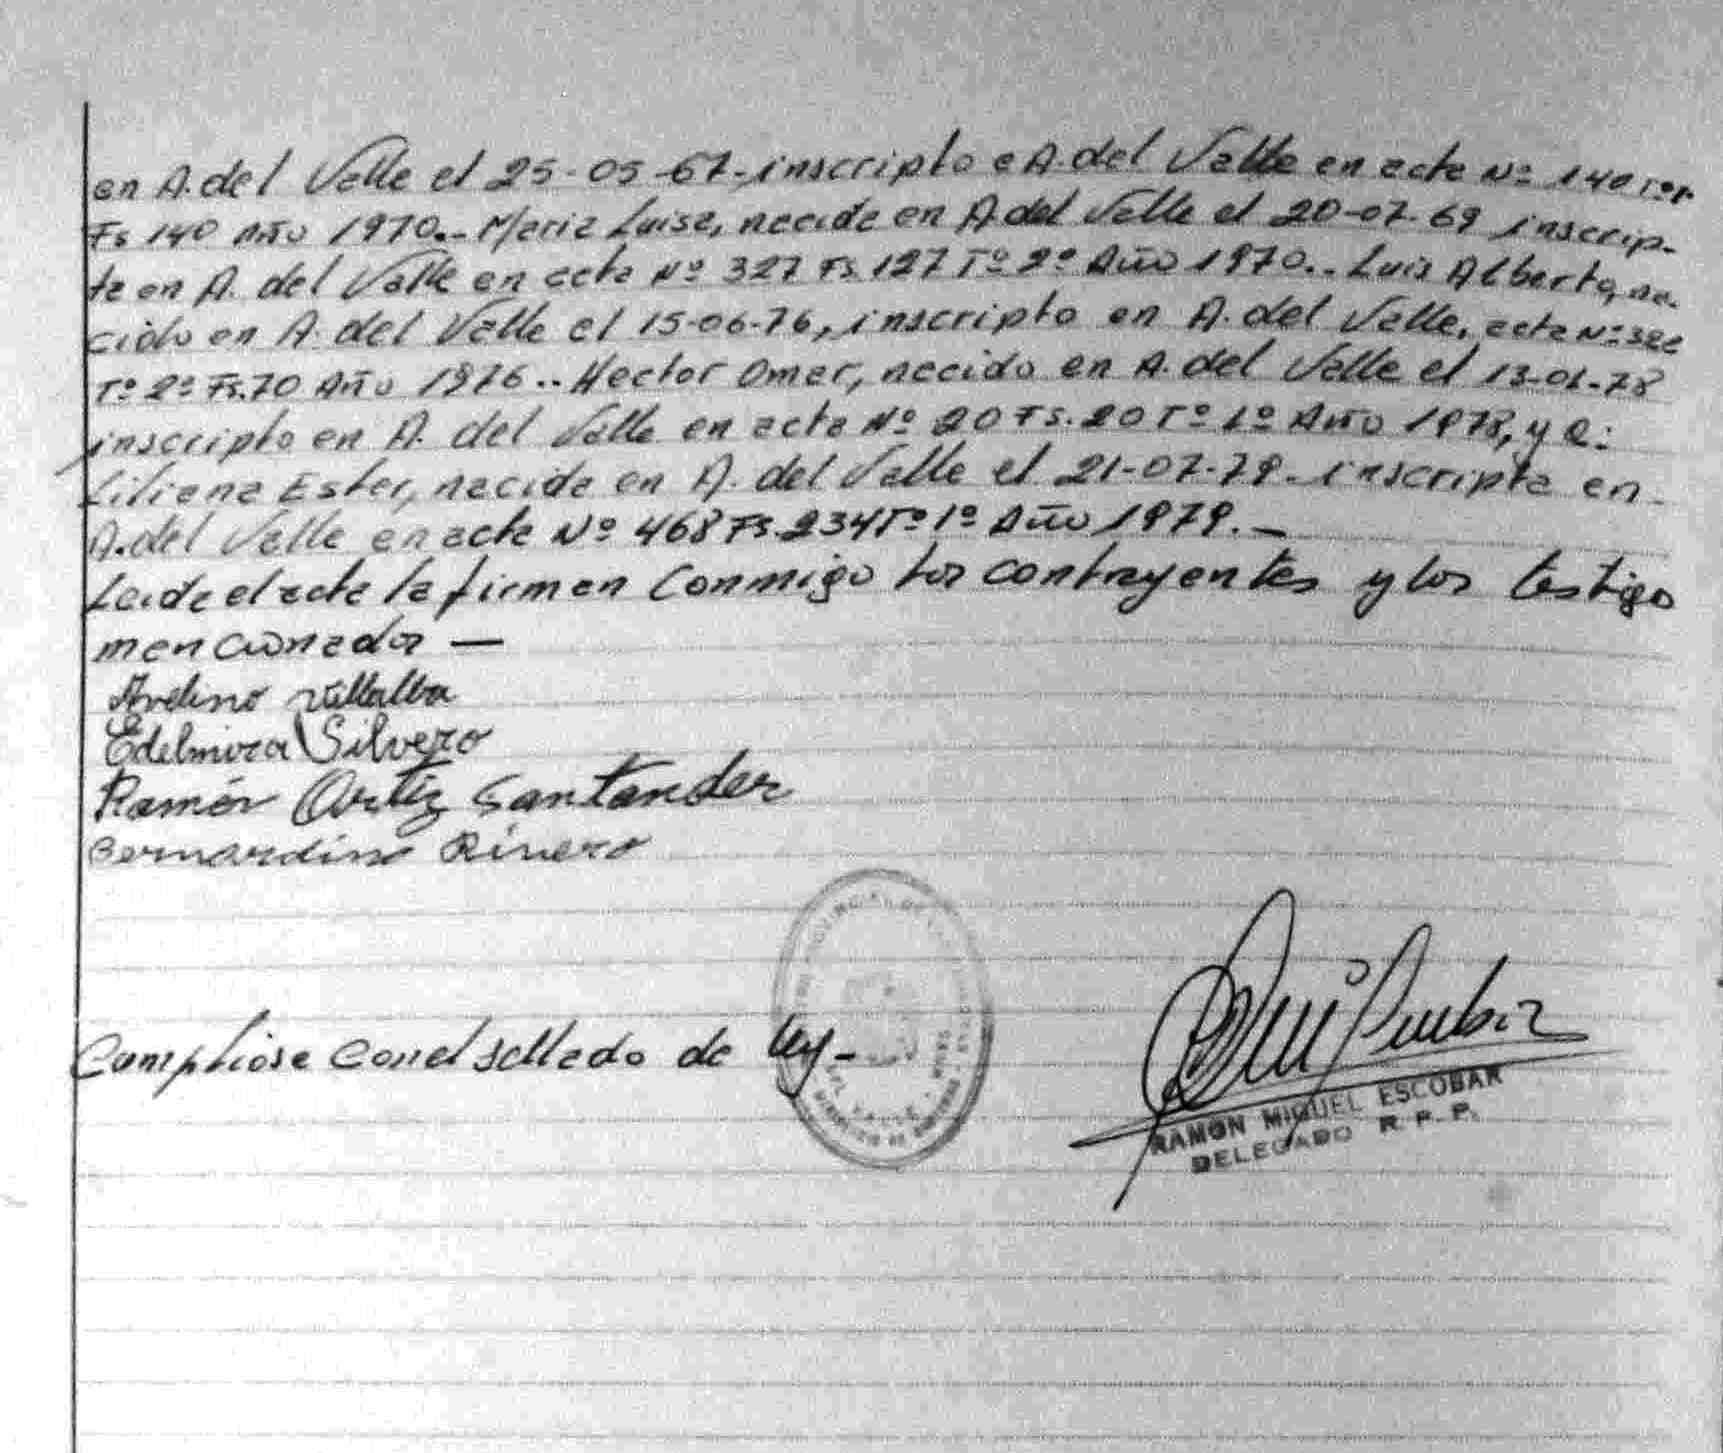 en A. del Valle el 25-05-67-, inscripto e A. del Valle en acta Nº 140 Tº 1º
Fs 140 Año 1970.- Maria Luisa, nacida en A. del Valle el 20-07-69 inscrip-
ta en A. del Valle en acta Nº 327 Fs 127 Tº 2º Año 1970.. Luis Alberto, na-
cido en A. del Valle el 15-06-76, inscripto en A. del Valle, acta Nº
Tº 2º Fs. 70 Año 1976.. Hector Omar, nacido en A. del Valle el 13-01-78
inscripto en A. del Valle en acta Nº 20 Fs. 20 Tº 1º Año 1978, y a:
Liliana Ester, nacida en A. del Valle el 21-07-79- inscripta en
A. del Valle en acta Nº 468 Fs. 234 Tº 1º Año 1979.-
Leida el acta la firman conmigo los contrayentes y los testigo
mencionados —
Avelino Villalba
Edelmira Silvero
Ramón Ortiz Santander
Bernardino Rivero
Cumpliose con el sellado de ley-
RAMON MIGUEL ESCOBAR
DELEGADO R. P. P.